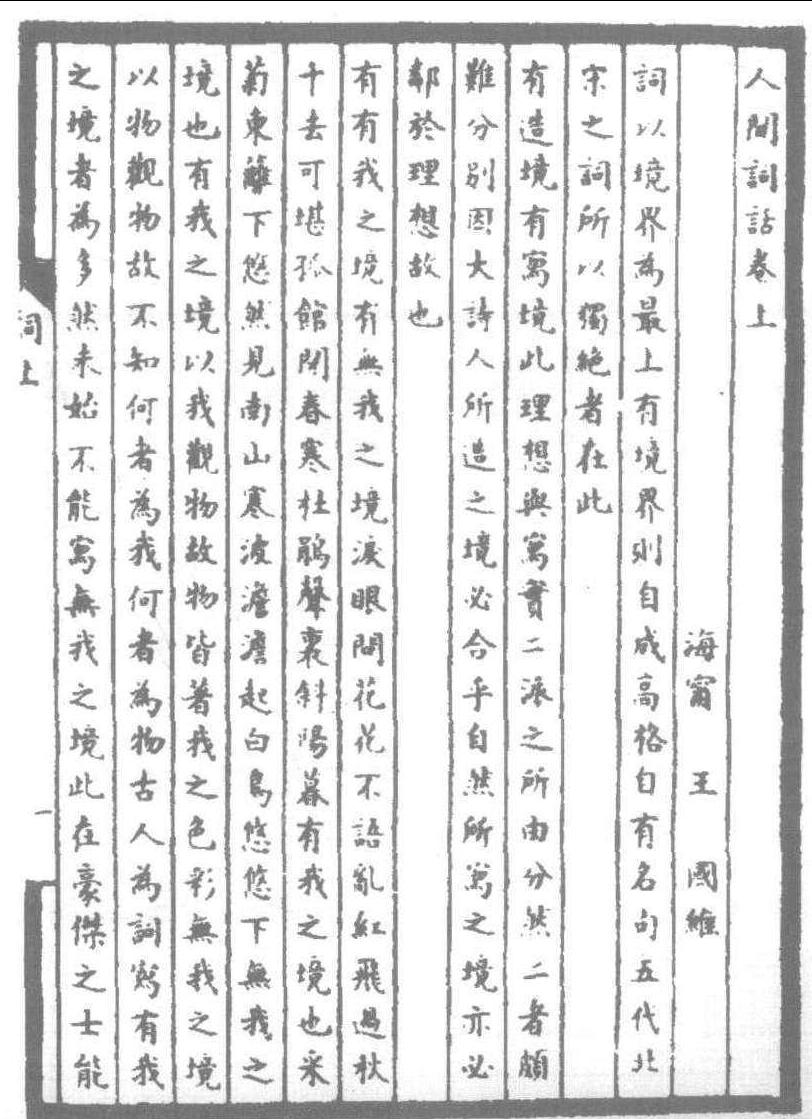 人間詞話卷上
海甯　王　國維
詞以境界為最上有境界則自成高格自有名句五代北
宋之詞所以獨絕者在此
有造境有寫境此理想與寫實二派之所由分然二者頗
難分別因大詩人所造之境必合乎自然所寫之境亦必
鄰於理想故也
有有我之境有無我之境淚眼問花花不語亂紅飛過秋
千去可堪孤館閉春寒杜鵑聲裏斜陽暮有我之境也采
菊東籬下悠然見南山寒波澹澹起白鳥悠悠下無我之
境也有我之境以我觀物故物皆著我之色彩無我之境
以物觀物故不知何者為我何者為物古人為詞寫有我
之境者為多然未始不能寫無我之境此在豪傑之士能
詞上
一